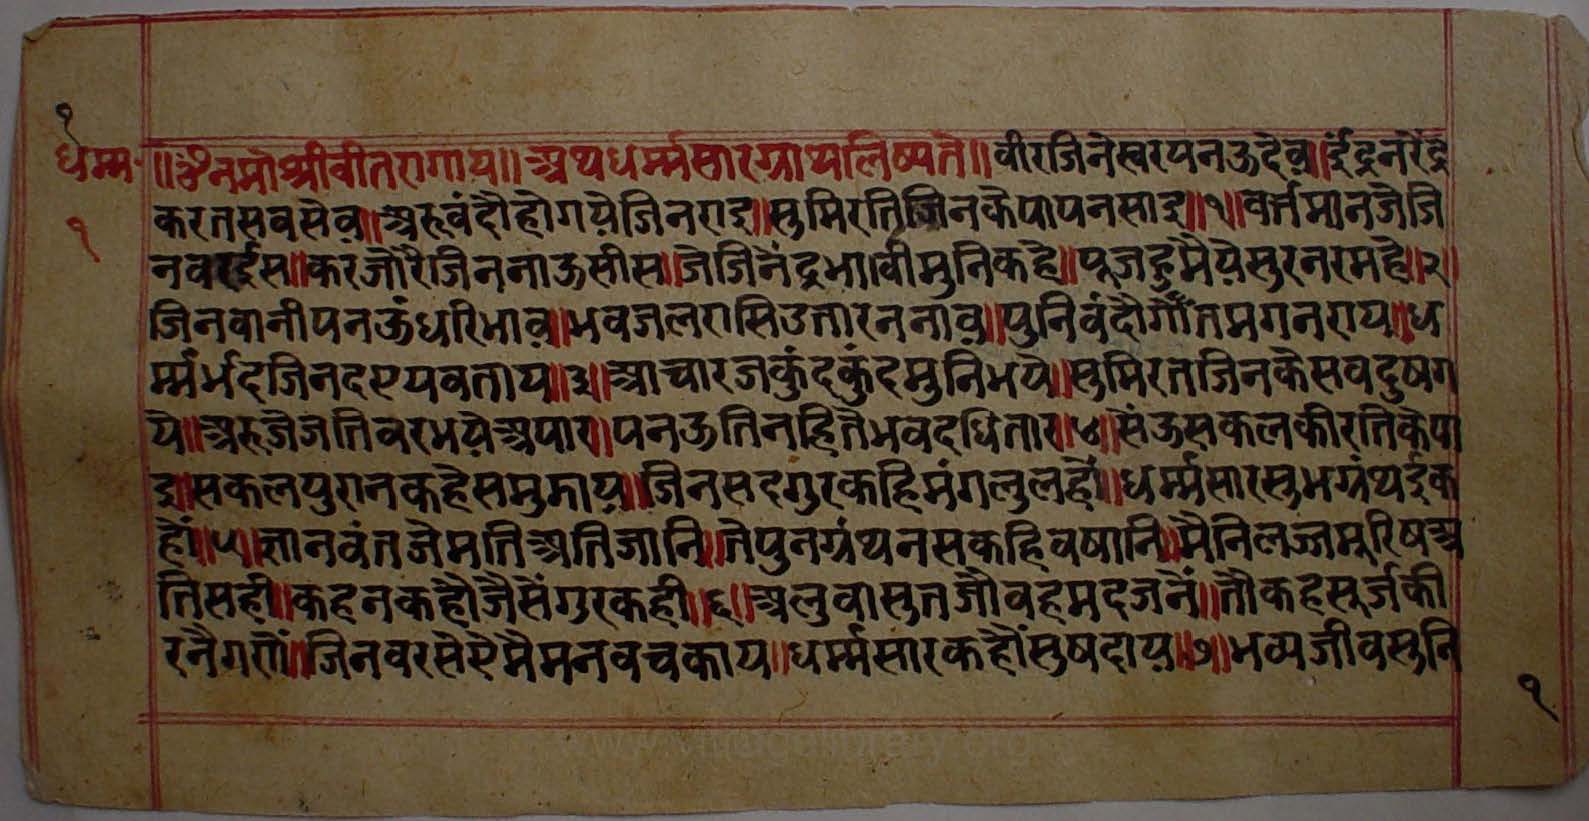 १
धर्म्म
१
॥ॐनमोश्रीवीतरागाय॥अथधर्म्मसारग्राथलिष्यते॥वीरजिनेस्वरपनऊदेव॥इंद्रनरेंद्र
करतसवसेव॥अरुवंदौहोगयेजिनराइ॥सुमिरतजिनकेपापनसाइ॥१॥वर्तमानजेजि
नवरईस॥करजोरैजिननाऊसीस॥जेजिनेंद्रभावीमुनिकहे॥पूजहुमैयेसुरनरमहै॥२॥
जिनवानीपनऊंधरिभाव॥भवजलरासिउतारननाव॥पुनिवंदौगौंतमगनराय॥ध
र्म्मभेदजिनदएयवताय॥३॥आचारजकुंदकुंदमुनिभये॥सुमिरतजिनकेसवदुषग
ये॥अरुजेजतिवरभयेअपार॥पनऊतिनहितेभवदधितार॥४॥सेंऊसकलकीरतिकेपा
इ॥सकलपुरानकहेसमुझाय॥जिनसदगुरकहिमंगलुलहौं॥धर्म्मसारसुभग्रंथईक
हौं॥५॥ज्ञानवंतजेमतिअतिजानि॥तेपुनग्रंथनसकहिवषानि॥मैनिलज्जमूरिषअ
तिसही॥कहनकहौजैसेंगुरकही॥६॥अलुवासुतजौवहमदजनैं॥तौकहसूर्जकी
रनैगसों॥जिनवरसेऐमैमनवचकाय॥धर्म्मसारकहौंसुषदाय॥७॥भव्यजीवसुनि
१
www.villagelibrary.org